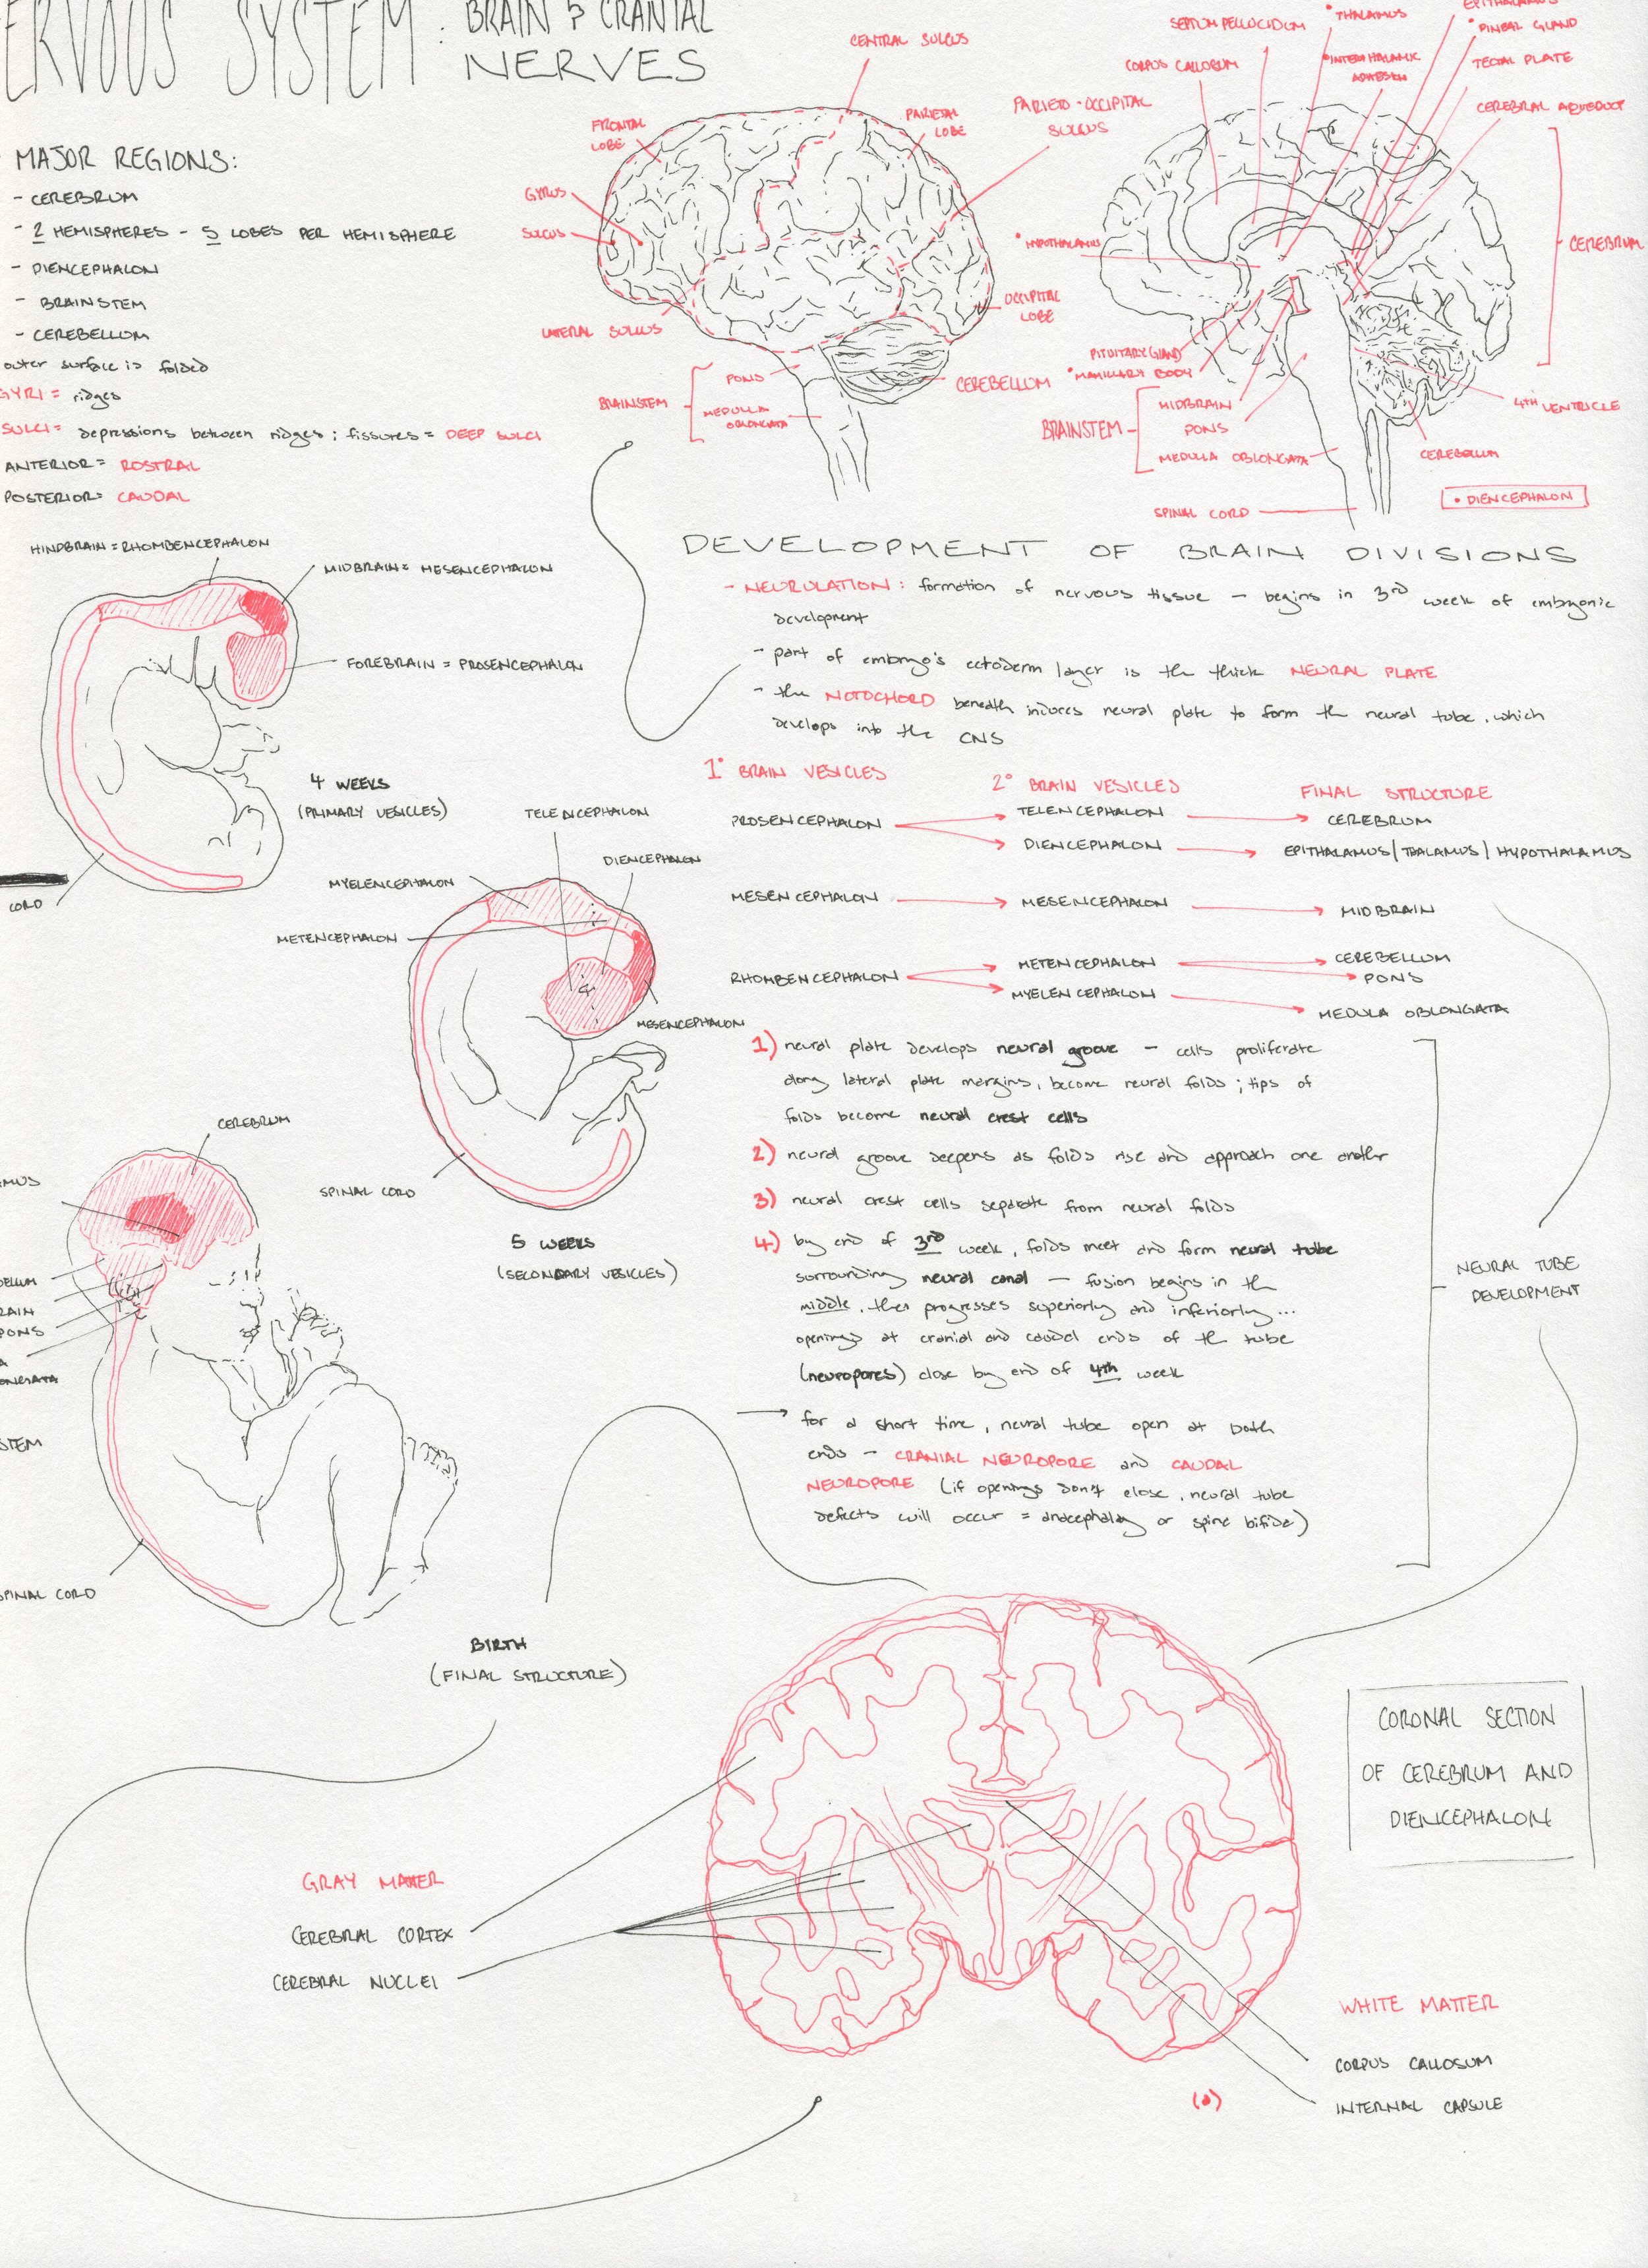 ERVOUS SYSTEM: BRAIN & CRANIAL
NERVES
MAJOR REGIONS:
- CEREBRUM
- 2 HEMISPHERES - 5 LOBES PER HEMISPHERE
- DIENCEPHALON
- BRAINSTEM
- CEREBELLUM
outer surface is folded
GYRI = ridges
SULCI = depressions between ridges; fissures = DEEP SULCI
ANTERIOR = ROSTRAL
POSTERIOR = CAUDAL
CENTRAL SULCUS
FRONTAL
LOBE
PARIETAL
LOBE
PARIETO-OCCIPITAL
SULCUS
GYRUS
SULCUS
LATERAL SULCUS
OCCIPITAL
LOBE
PONS
BRAINSTEM
MEDULLA
OBLONGATA
CEREBELLUM
SEPTUM PELLUCIDUM
• THALAMUS
EPITHALAMUS
• PINEAL GLAND
CORPUS CALLOSUM
• INTERTHALAMIC
ADHESION
TECTAL PLATE
CEREBRAL AQUEDUCT
• HYPOTHALAMUS
CEREBRUM
PITUITARY GLAND
• MAMILLARY BODY
MIDBRAIN
BRAINSTEM
PONS
MEDULLA OBLONGATA
4TH VENTRICLE
CEREBELLUM
• DIENCEPHALON
SPINAL CORD
HINDBRAIN = RHOMBENCEPHALON
MIDBRAIN = MESENCEPHALON
FOREBRAIN = PROSENCEPHALON
4 WEEKS
(PRIMARY VESICLES)
CORD
DEVELOPMENT OF BRAIN DIVISIONS
- NEURULATION: formation of nervous tissue - begins in 3rd week of embryonic
development
- part of embryo's ectoderm layer is the thick NEURAL PLATE
- the NOTOCHORD beneath induces neural plate to form the neural tube, which
develops into the CNS
1° BRAIN VESICLES 2° BRAIN VESICLES FINAL STRUCTURE
PROSENCEPHALON TELENCEPHALON CEREBRUM
DIENCEPHALON EPITHALAMUS / THALAMUS / HYPOTHALAMUS
MESENCEPHALON MESENCEPHALON MIDBRAIN
RHOMBENCEPHALON METENCEPHALON CEREBELLUM
PONS
MYELENCEPHALON MEDULA OBLONGATA
TELENCEPHALON
DIENCEPHALON
MYELENCEPHALON
METENCEPHALON
MESENCEPHALON
SPINAL CORD
5 WEEKS
(SECONDARY VESICLES)
1) neural plate develops neural groove - cells proliferate
along lateral plate margins, become neural folds; tips of
folds become neural crest cells
2) neural groove deepens as folds rise and approach one another
3) neural crest cells separate from neural folds
4) by end of 3rd week, folds meet and form neural tube
surrounding neural canal - fusion begins in the
middle, then progresses superiorly and inferiorly...
openings at cranial and caudal ends of the tube
(neuropores) close by end of 4th week
→ for a short time, neural tube open at both
ends - CRANIAL NEUROPORE and CAUDAL
NEUROPORE (if openings don't close, neural tube
defects will occur = anacephaly or spina bifida)
NEURAL TUBE
DEVELOPMENT
CEREBRUM
MUS
BELLUM
RAIN
PONS
A
ONGATA
STEM
SPINAL CORD
BIRTH
(FINAL STRUCTURE)
CORONAL SECTION
OF CEREBRUM AND
DIENCEPHALON
GRAY MATTER
CEREBRAL CORTEX
CEREBRAL NUCLEI
WHITE MATTER
CORPUS CALLOSUM
INTERNAL CAPSULE
(a)